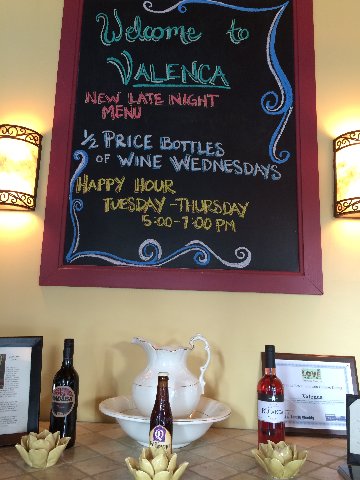 Welcome to
VALENCA
NEW LATE NIGHT
MENU
1/2 PRICE BOTTLES
OF WINE WEDNESDAYS
HAPPY HOUR
TUESDAY-THURSDAY
5:00-7:00 PM
LOVE
Valenca